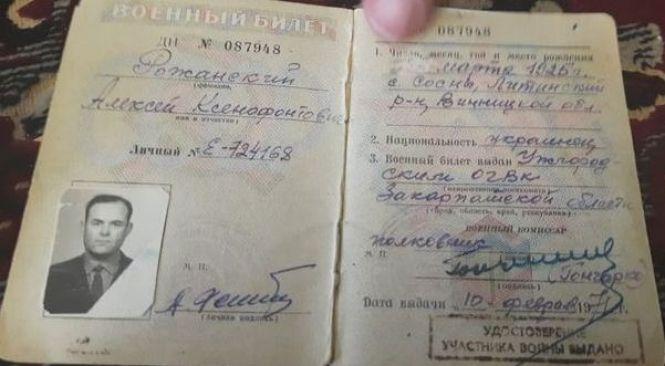 ВОЕННЫЙ БИЛЕТ
ДН № 087948
Рожанский
(фамилия)
Алексей Ксенофонтович
имя и отчество)
Личный № Е-724168
М. П.
(личная подпись)
087948
1. Число, месяц, год и место рождения
марта 1926 г.
с Сосны, Литинский
р-н, Винницкой обл.
2. Национальность украинец
3. Военный билет выдан Ужгород-
ским ОГВК
Закарпатской области
(город, область, край, республика)
ВОЕННЫЙ КОМИССАР
полковник
М. П.
(подпись)
Дата выдачи „10 феврал 1971 г.
УДОСТОВЕРЕНИЕ
УЧАСТНИКА ВОЙНЫ ВЫДАНО